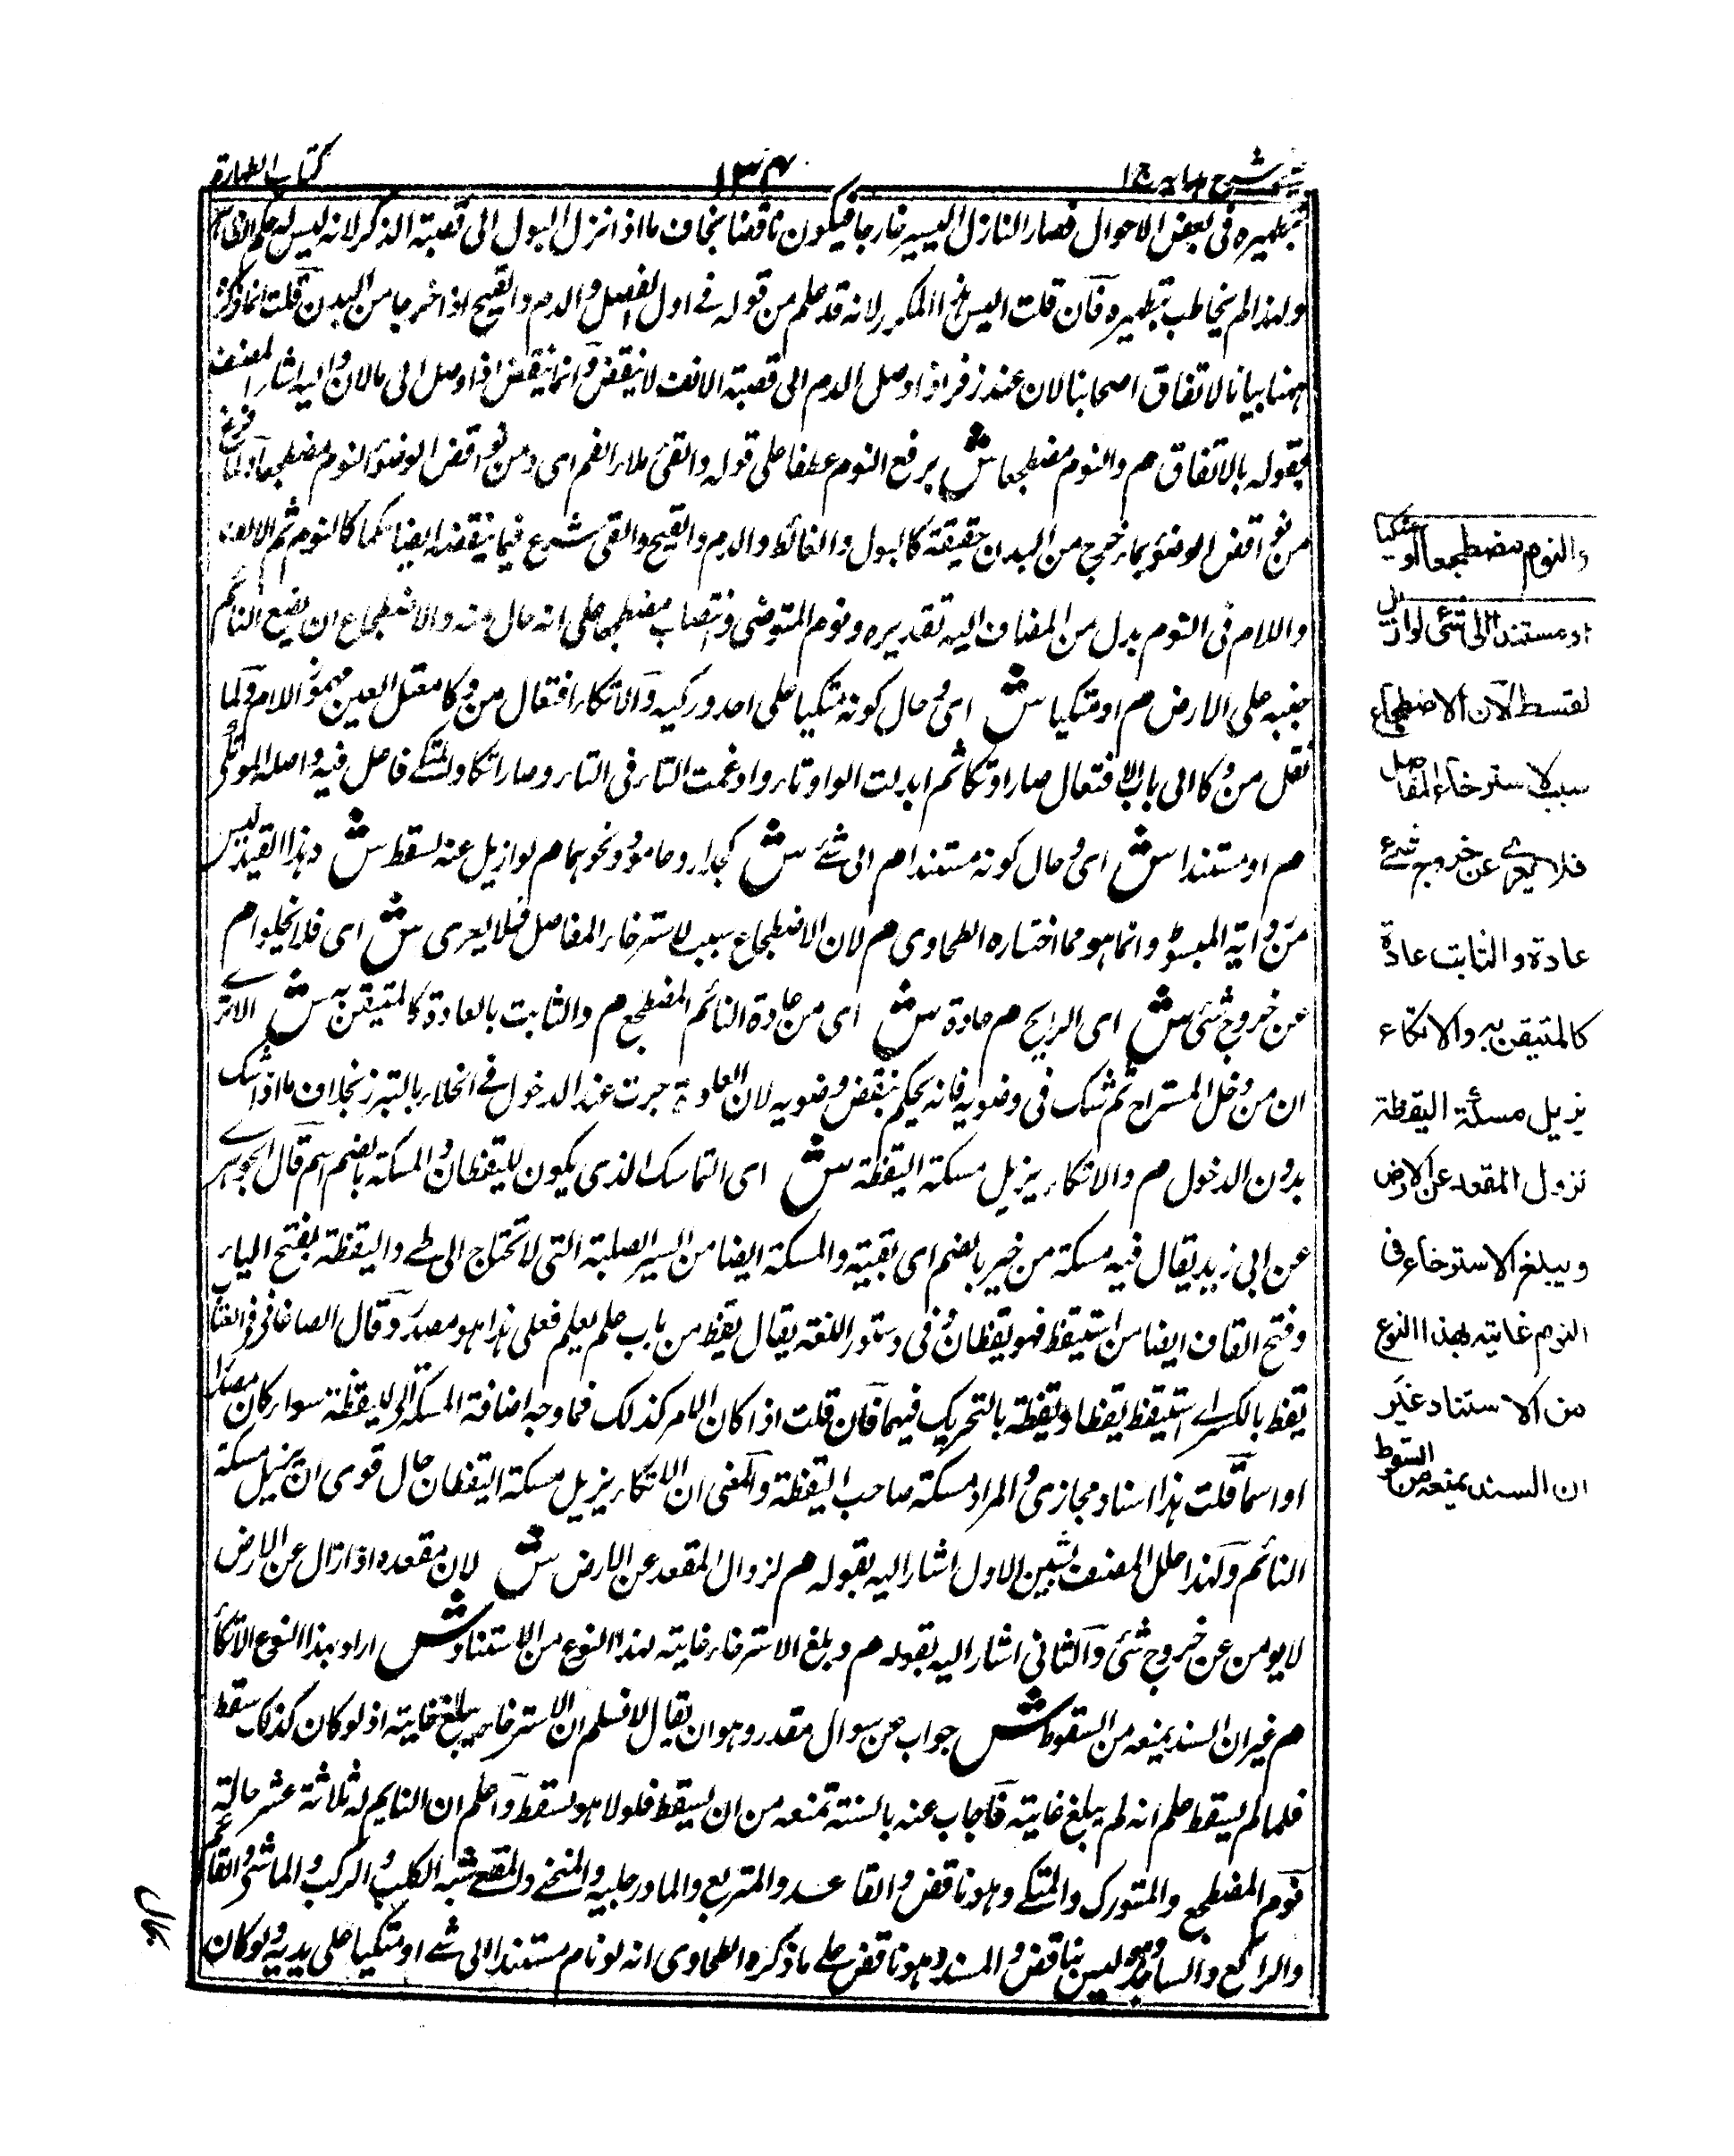 شرح هدایه ج ۱
۱۳۴
کتاب الطهارة
بتطهیره فی بعض الاحوال فصار النازل الیسیر خارجا فیکون ناقضا بخلاف ما اذا نزل البول الی قصبة الذکر لانه لیس له حکم الظاهر
ولهذا لم یخاطب بتطهیره فان قلت الیس هذا المکرر لانه قد علم من قوله فے اول الفصل والدم والقیح اذا خرجا من البدن قلت انما ذکره
ههنا بیانا لاتفاق اصحابنا لان عند زفر اذا وصل الدم الی قصبة الانف لا ینقض وانما ینقض اذا وصل الی مالان والیه اشار المصنف
بقوله بالاتفاق م والنوم مضطجعا ش برفع النوم عطفا علی قوله والقئ ملأ الفم ای ومن نواقض الوضوء النوم مضطجعا ولما فرغ
من نواقض الوضوء بما خرج من البدن حقیقة کالبول والغائط والدم والقیح والقئ شرع فیما ینقضه ایضا حکما کالنوم ثم الالف
واللام فی النوم بدل من المضاف الیه تقدیره ونوم المتوضی وانتصاب مضطجعا علی انه حال منه والاضطجاع ان یضع النائم
جنبه علی الارض م او متکیا ش ای و حال کونه متکیا علی احد ورکیه والاتکاء افتعال من وکا معتل العین مهموز اللام ولما
نقل من وکا الی باب الافتعال صار اوتکا ثم ابدلت الواو تاء وادغمت التاء فی التاء وصار اتکا والمتکے فاعل فیه واصله الموتکی
م او مستندا ش ای و حال کونه مستندا م الی شئے ش کجدار وعامود ونحوهما م لو ازیل عنه لسقط ش وهذا القید لیس
من روایة المبسوط وانما هو مما اختاره الطحاوی م لان الاضطجاع سبب لاسترخاء المفاصل فلا یعری ش ای فلا یخلو م
عن خروج شئ ش ای الریح م عادة ش ای من عادة النائم المضطجع م والثابت بالعادة کالمتیقن به ش الا تری
ان من دخل المستراح ثم شک فی وضویه فانه یحکم بنقض وضویه لان العادة جرت عند الدخول فے الخلاء بالتبرز بخلاف ما اذا شک
بدون الدخول م والاتکاء یزیل مسکة الیقظة ش ای التماسک الذی یکون للیقظان والمسکة بالضم اسم قال الجوهری
عن ابی زید یقال فیه مسکة من خیر بالضم ای بقیته والمسکة ایضا من السیر الصلبة التی لا تحتاج الی طے والیقظة بفتح الیاء
وفتح القاف ایضا من استیقظ فهو یقظان وفی دستور اللغة یقال یقظ من باب علم یعلم فعلی هذا هو مصدر وقال الصاغانی فی العباب
یقظ بالکسر اے استیقظ یقظا ویقظة بالتحریک فیهما فان قلت اذا کان الامر کذلک فما وجه اضافة المسکة الی الیقظة سواء کان مصدرا
او اسما قلت هذا اسناد مجازی والمراد مسکة صاحب الیقظة والمعنی ان الاتکاء یزیل مسکة الیقظان حال قوی ان یزیل مسکة
النائم ولهذا علل المصنف بشیئین الاول اشار الیه بقوله م لزوال المقعد عن الارض ش لان مقعده اذا زال عن الارض
لا یومن عن خروج شئ والثانی اشار الیه بقوله م و بلغ الاسترخاء غایته بهذا النوع من الاستناد ش اراد بهذا النوع الاتکاء
م غیر ان السند یمنعه من السقوط ش جواب عن سوال مقدر وهو ان یقال لا نسلم ان الاسترخاء یبلغ غایته اذ لو کان کذلک سقط
فلما لم یسقط علم انه لم یبلغ غایته فاجاب عنه بالسند تمنعه من ان یسقط فلولا هو لسقط واعلم ان النایم له ثلاثة عشر حالة
نوم المضطجع والمتورک والمتکے وهو ناقض والقاعد والمتربع والماد رجلیه والمنحنے والمقعے شبه الکلب والراکب والماشی والقائم
والراکع والساجد وهو لیس بناقض والمستند وهو ناقض علے ما ذکره الطحاوی انه لو نام مستندا الی شے او متکیا علی یدیه ولو کان
والنوم مضطجعا او متکیا
او مستندا الی شئ لو ازیل
لسقط لان الاضطجاع
سبب لاسترخاء المفاصل
فلا یعرے عن خروج شئ
عادة والثابت عادة
کالمتیقن به والاتکاء
یزیل مسکة الیقظة
نزول المقعد عن الارض
ویبلغ الاسترخاء فی
النوم غایته بهذا النوع
من الاستناد غیر
ان السند یمنعه من السقوط